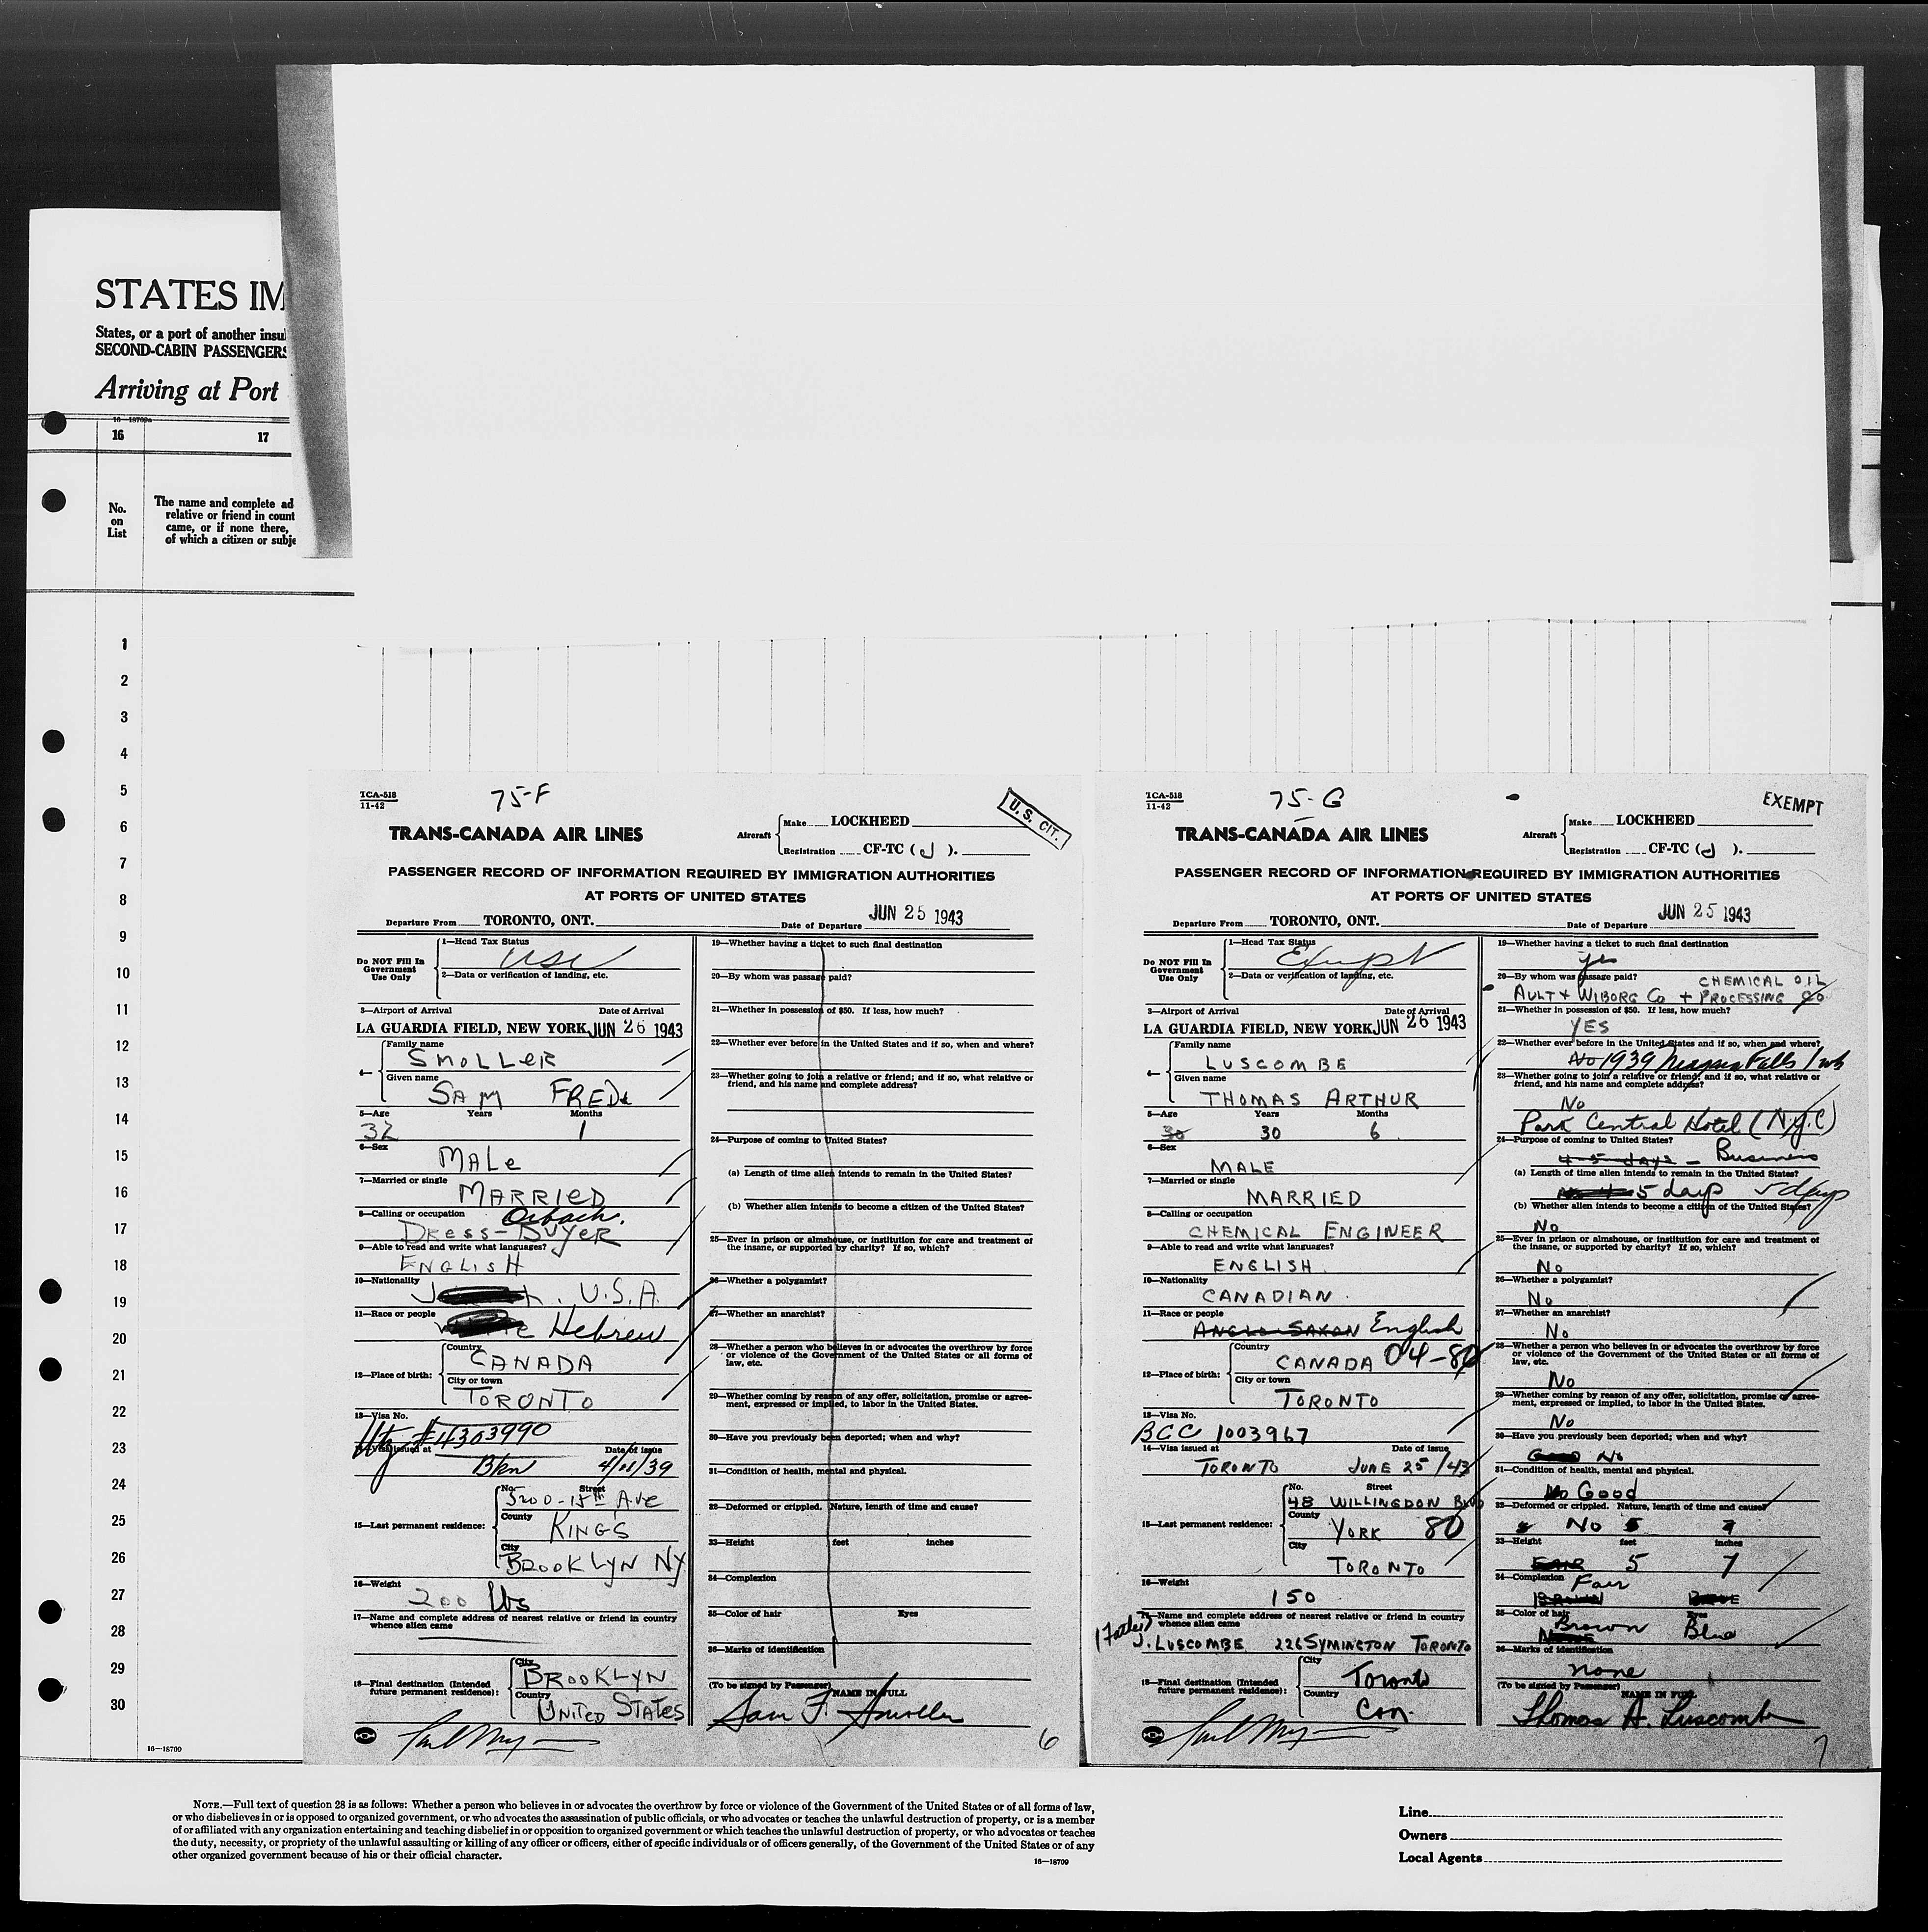 STATES IM
States, or a port of another insul
SECOND-CABIN PASSENGERS
Arriving at Port
16—18709a
16 17
No. on List
The name and complete ad
relative or friend in count
came, or if none there,
of which a citizen or subje
1
2
3
4
5
6
7
8
9
10
11
12
13
14
15
16
17
18
19
20
21
22
23
24
25
26
27
28
29
30
16—18709
TCA-518
11-42
75-F
U.S. CIT.
TRANS-CANADA AIR LINES
Aircraft
Make LOCKHEED
Registration CF-TC (J).
PASSENGER RECORD OF INFORMATION REQUIRED BY IMMIGRATION AUTHORITIES
AT PORTS OF UNITED STATES
Departure From TORONTO, ONT. Date of Departure JUN 25 1943
Do NOT Fill In Government Use Only
1—Head Tax Status
USC
2—Data or verification of landing, etc.
3—Airport of Arrival Date of Arrival
LA GUARDIA FIELD, NEW YORK JUN 26 1943
4—
Family name
SMOLLER
Given name
SAM FRED
5—Age Years Months
32 1
6—Sex
MALE
7—Married or single
MARRIED
8—Calling or occupation
Orbach.
DRESS-BUYER
9—Able to read and write what languages?
ENGLISH
10—Nationality
U.S.A.
11—Race or people
Hebrew
12—Place of birth:
Country
CANADA
City or town
TORONTO
13—Visa No.
#4303990
14—Visa issued at Date of issue
Bkn 4/11/39
15—Last permanent residence:
No. Street
5200-15th Ave
County
KINGS
City
BROOKLYN NY
16—Weight
200 lbs
17—Name and complete address of nearest relative or friend in country
whence alien came
18—Final destination (Intended
future permanent residence):
City
BROOKLYN
Country
UNITED STATES
19—Whether having a ticket to such final destination
20—By whom was passage paid?
21—Whether in possession of $50. If less, how much?
22—Whether ever before in the United States and if so, when and where?
23—Whether going to join a relative or friend; and if so, what relative or
friend, and his name and complete address?
24—Purpose of coming to United States?
(a) Length of time alien intends to remain in the United States?
(b) Whether alien intends to become a citizen of the United States?
25—Ever in prison or almshouse, or institution for care and treatment of
the insane, or supported by charity? If so, which?
26—Whether a polygamist?
27—Whether an anarchist?
28—Whether a person who believes in or advocates the overthrow by force
or violence of the Government of the United States or all forms of
law, etc.
29—Whether coming by reason of any offer, solicitation, promise or agree-
ment, expressed or implied, to labor in the United States.
30—Have you previously been deported; when and why?
31—Condition of health, mental and physical.
32—Deformed or crippled. Nature, length of time and cause?
33—Height feet inches
34—Complexion
35—Color of hair Eyes
36—Marks of identification
(To be signed by Passenger) NAME IN FULL
Sam F. Smoller
6
TCA-518
11-42
75-G
EXEMPT
TRANS-CANADA AIR LINES
Aircraft
Make LOCKHEED
Registration CF-TC (J).
PASSENGER RECORD OF INFORMATION REQUIRED BY IMMIGRATION AUTHORITIES
AT PORTS OF UNITED STATES
Departure From TORONTO, ONT. Date of Departure JUN 25 1943
Do NOT Fill In Government Use Only
1—Head Tax Status
Exempt
2—Data or verification of landing, etc.
3—Airport of Arrival Date of Arrival
LA GUARDIA FIELD, NEW YORK JUN 26 1943
4—
Family name
LUSCOMBE
Given name
THOMAS ARTHUR
5—Age Years Months
30 30 6
6—Sex
MALE
7—Married or single
MARRIED
8—Calling or occupation
CHEMICAL ENGINEER
9—Able to read and write what languages?
ENGLISH
10—Nationality
CANADIAN
11—Race or people
ANGLO-SAXON English
12—Place of birth:
Country
CANADA 04-80
City or town
TORONTO
13—Visa No.
BCC 1003967
14—Visa issued at Date of issue
TORONTO JUNE 25/43
15—Last permanent residence:
No. Street
48 WILLINGDON BLVD
County
YORK 80
City
TORONTO
16—Weight
150
17—Name and complete address of nearest relative or friend in country
whence alien came
(Father)
J. LUSCOMBE 226 SYMINGTON TORONTO
18—Final destination (Intended
future permanent residence):
City
Toronto
Country
Can.
19—Whether having a ticket to such final destination
Yes
20—By whom was passage paid? CHEMICAL OIL
AULT & WIBORG Co + PROCESSING Co
21—Whether in possession of $50. If less, how much?
YES
22—Whether ever before in the United States and if so, when and where?
No 1939 Niagara Falls 1 wk
23—Whether going to join a relative or friend; and if so, what relative or
friend, and his name and complete address?
No
Park Central Hotel (N.Y.C)
24—Purpose of coming to United States?
4-5 days - Business
(a) Length of time alien intends to remain in the United States?
5 days 5 days
(b) Whether alien intends to become a citizen of the United States?
No
25—Ever in prison or almshouse, or institution for care and treatment of
the insane, or supported by charity? If so, which?
No
26—Whether a polygamist?
No
27—Whether an anarchist?
No
28—Whether a person who believes in or advocates the overthrow by force
or violence of the Government of the United States or all forms of
law, etc.
No
29—Whether coming by reason of any offer, solicitation, promise or agree-
ment, expressed or implied, to labor in the United States.
No
30—Have you previously been deported; when and why?
Good No
31—Condition of health, mental and physical.
No Good
32—Deformed or crippled. Nature, length of time and cause?
No 5 7
33—Height feet inches
FAIR 5 7
34—Complexion
Fair
BROWN BLUE
35—Color of hair Eyes
Brown Blue
NONE
36—Marks of identification
none
(To be signed by Passenger) NAME IN FULL
Thomas A. Luscombe
7
NOTE.—Full text of question 28 is as follows: Whether a person who believes in or advocates the overthrow by force or violence of the Government of the United States or of all forms of law,
or who disbelieves in or is opposed to organized government, or who advocates the assassination of public officials, or who advocates or teaches the unlawful destruction of property, or is a member
of or affiliated with any organization entertaining and teaching disbelief in or opposition to organized government or which teaches the unlawful destruction of property, or who advocates or teaches
the duty, necessity, or propriety of the unlawful assaulting or killing of any officer or officers, either of specific individuals or of officers generally, of the Government of the United States or of any
other organized government because of his or their official character.
16—18709
Line
Owners
Local Agents